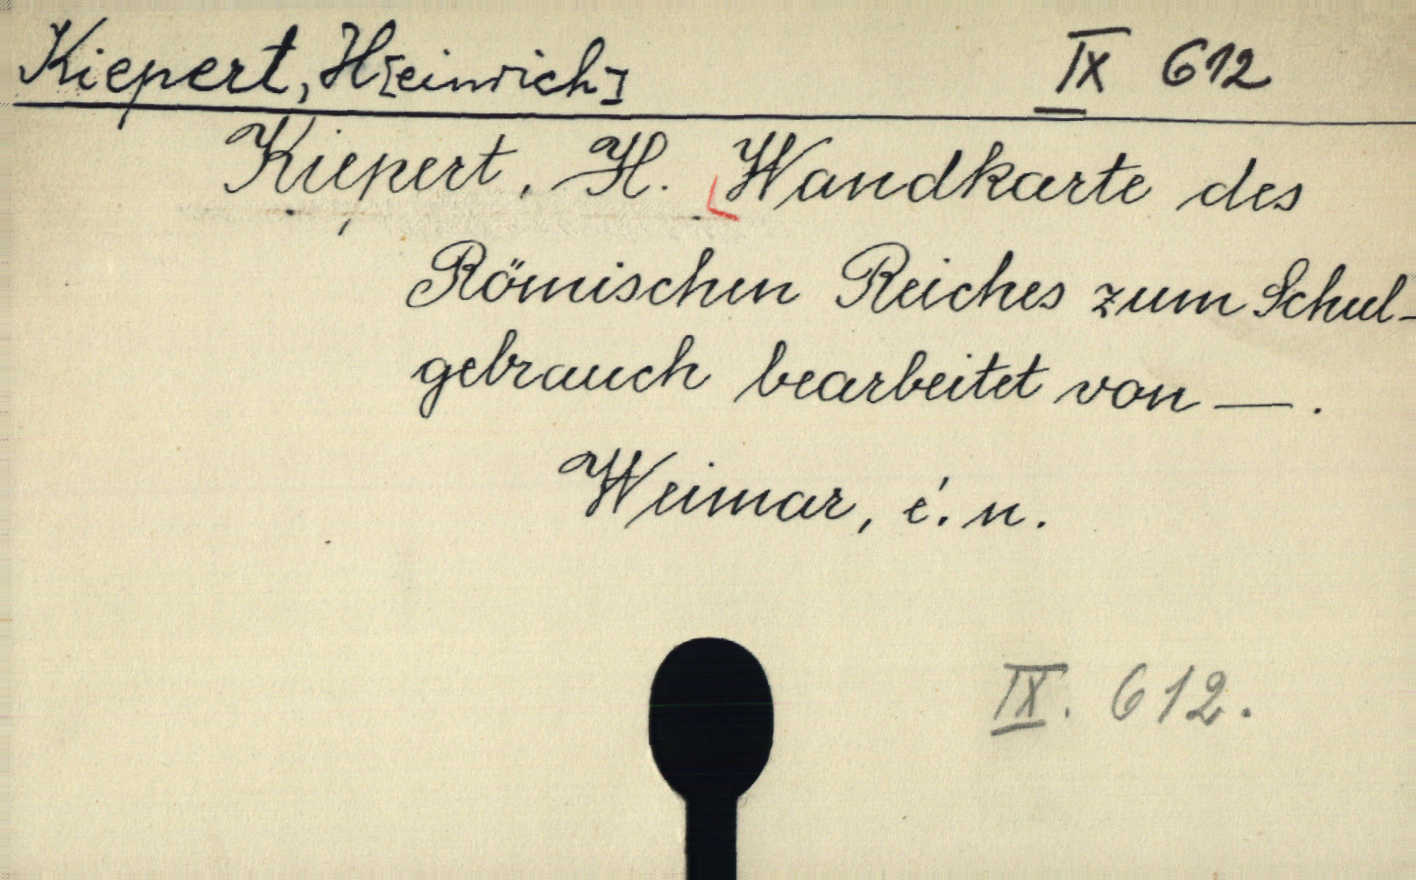 Kiepert, H[einrich] IX 612
Kiepert, H. Wandkarte des
Römischen Reiches zum Schul-
gebrauch bearbeitet von —.
Weimar, é. n.
IX. 612.